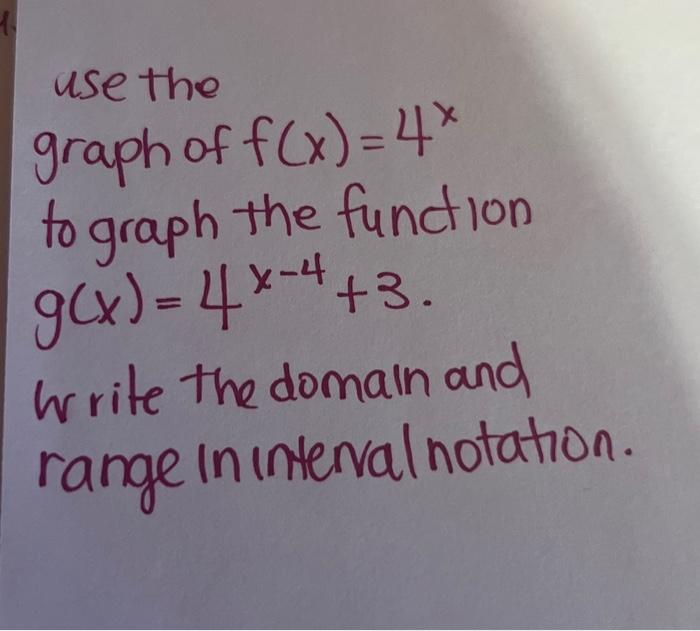 use the
graph of f(x) = 4^x
to graph the function
g(x) = 4^{x-4} + 3.
Write the domain and
range in interval notation.